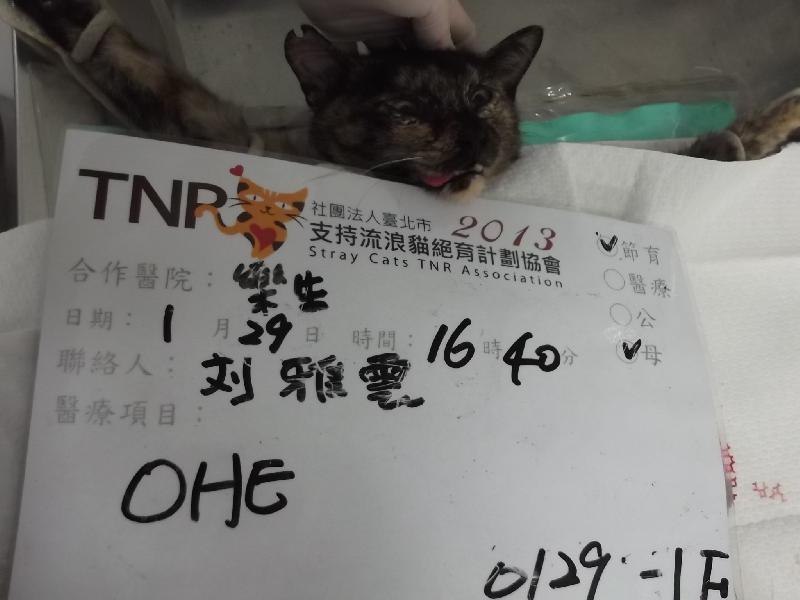 TNR
社團法人臺北市 2013
支持流浪貓絕育計劃協會
Stray Cats TNR Association
節育
醫療
公
母
合作醫院：樂生
日期：1月29日 時間：16時40分
聯絡人：刘雅雲
醫療項目：
OHE
0129-1F